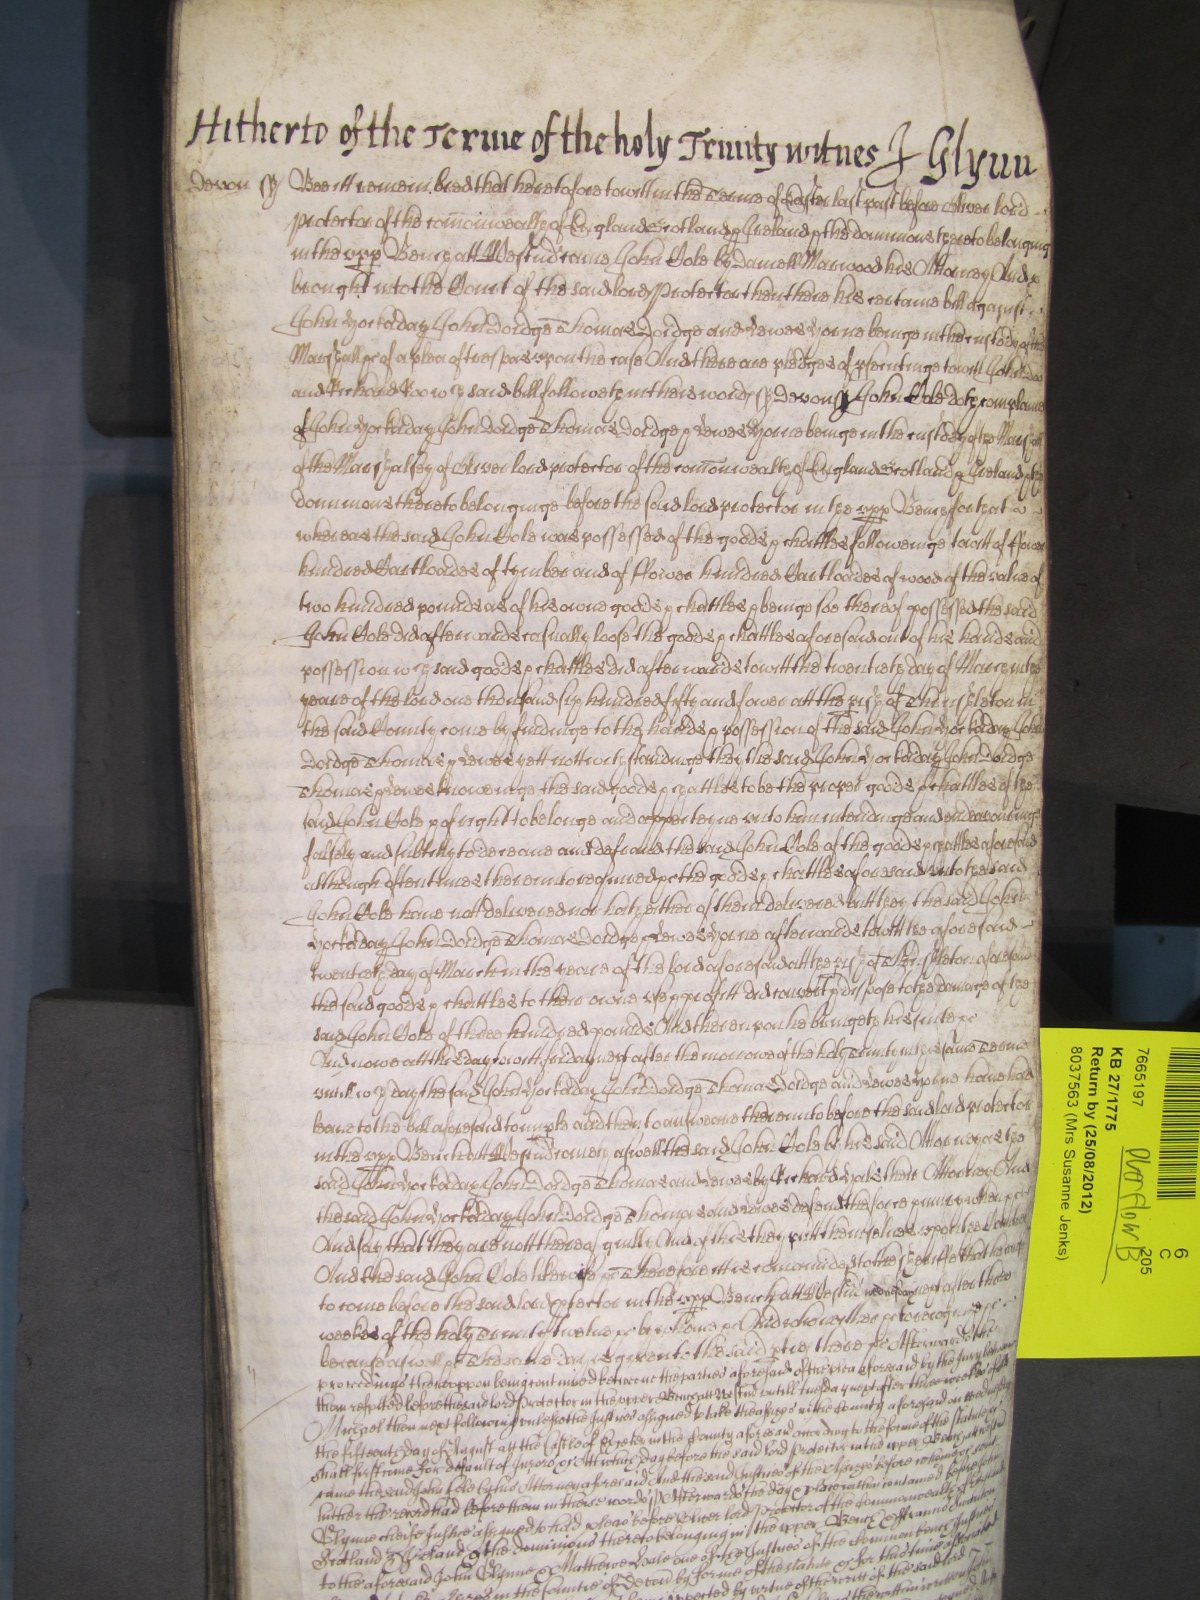 Hitherto of the Terme of the holy Trinity witnes J Glynn
Devon ss Bee itt remembred that heretofore towitt in the Terme of Easter last past before Oliver lord
protector of the comonwealth of England Scotland & Ireland & the dominions thereto belonging
in the upp Bench att Westm came John Cole by Daniell Marwood his Attorney And
brought into the Court of the said lord Protector then there his certaine bill against
John Yockaday John Dordge Thomas Dordge and Lewes Yorne beinge in the custody of the
Marshall &c of a plea of trespas upon the case And there are pledges of psentinge towitt John Doo
and Richard Roo wch said bill followeth in theis words ss Devon ss John Cole doth complaine
of John Yockaday John Dordge Thomas Dordge & Lewes Yorne beinge in the custody of the
of the Marshalsey of Oliver lord protector of the comonwealth of England Scotland & Ireland &
dominions thereto belonginge before the said lord protector in the upp Bench for that
whereas the said John Cole was possessed of the goods & chattles followeinge towitt of ffower
hundred Cartloades of tymber and of ffower hundred Cartloades of wood of the value of
two hundred pounds as of his owne goods & chattles & beinge soe thereof possessed the said
John Cole did afterwards casually loose the goods & chattles aforesaid out of his hands and
possession wch said goods & chattles did afterwards towitt the twentieth day of March in the
yeare of the lord one thousand six hundred fifty and fower att the pish of in
the said County come by findinge to the hands & possession of the said John Yockaday John
Dordge Thomas & Lewes yett nottwithstandinge they the said John Yockaday John Dordge
Thomas & Lewes knoweinge the said goods & chattles to be the proper goods & chattles of the
said John Cole & of right to belonge and apperteyne unto him intendinge and endeavouringe
falsely and subtilly to deceave and defraud the said John Cole of the goods & chattles aforesaid
although oftentimes thereunto required &c the goods & chattles aforesaid unto the said
John Cole have nott delivered nor hath either of them delivered butt they the said John
Yockaday John Dordge Thomas Dordge & Lewes Yorne afterwards towitt the aforesaid
twentieth day of March in the yeare of the lord aforesaid att the pish of aforesaid
the said goods & chattles to there owne use & profitt did convert & dispose to the damage of the
said John Cole of three hundred pounds And thereupon he bringeth his suite &c
And nowe att this day towitt friday next after the morrowe of the holy Trinity in this same Terme
untill wch day the said John Yockaday John Dordge Thomas Dordge and Lewes Yorne have had
leave to the bill aforesaid to imple and then to answeare thereunto before the said lord protector
in the upp Bench att Westm come aswell the said John Cole by his said Attorney as the
said John Yockaday John Dordge Thomas and Lewes by Richard their Attorney And
the said John Yockaday John Dordge Thomas and Lewes defend the force & iniury when &c
And say that they are nott thereof guilty And of this they putt themselves upon the Countrey
And the said John Cole likewise &c Therefore itt is comanded to the sheriffe that he cause
to come before the said lord ptector in the upp Bench att Westm wednesday next after three
weekes of the holy Trinity twelve &c by whome &c And who neither &c to recognize &c
because aswell &c The same day is given to the said pties there &c Afterwards the
proceedings thereuppon being continued betweene the parties aforesaid of the plea aforesaid by the Jury
them respited before the said lord Protector in the upper Bench att Westm untill tuesday next after three weekes of St
Michael then next following unles the Justices assigned to take the assizes in the County aforesaid on wednesday
the fifteenth day of August att the Castle of Exeter in the County aforesaid according to the forme of the statute
shall first come for default of Jurors &c Att which day before the said lord Protector in the upper Bench att Westm
came the said John Cole by his Attorney aforesaid And the said Justices of the Assizes before whome &c sent
hither the record had before them in theise words ss Afterwards the day & place within contained before John
Glynne cheife Justice assigned to hold pleas before Oliver lord Protector of the Commonwealth of England
Scotland & Ireland & the dominions thereto belonging in the upper Bench
to the aforesaid John Glynne & Mathewe Hale one of the Justices of the common Bench Justices
in the countie of Devon by forme of the statute &c for this time associated
by virtue of the writt of the said lord
7665197
KB 27/1775
Return by (25/08/2012)
8037563 (Mrs Susanne Jenks)
Overflow B
205
6
C